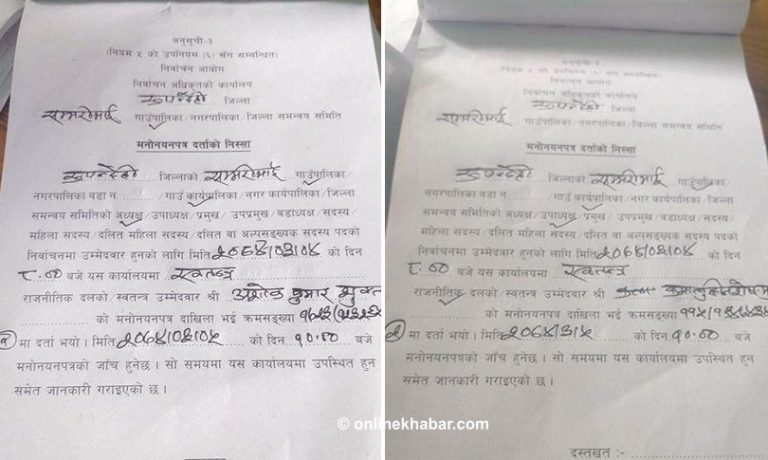 अनुसूची-३
(नियम ५ को उपनियम (६) संग सम्बन्धित)
निर्वाचन आयोग
निर्वाचन अधिकृतको कार्यालय
रुपन्देही जिल्ला
सम्मरीमाई गाउँपालिका/नगरपालिका/जिल्ला समन्वय समिति
मनोनयनपत्र दर्ताको निस्सा
रुपन्देही जिल्लाको सम्मरीमाई गाउँपालिका/
नगरपालिका वडा नं ......../गाउँ कार्यपालिका/नगर कार्यपालिका/जिल्ला
समन्वय समितिको अध्यक्ष/उपाध्यक्ष/प्रमुख/उपप्रमुख/वडाध्यक्ष/सदस्य/
महिला सदस्य/दलित महिला सदस्य/दलित वा अल्पसङ्ख्यक सदस्य पदको
निर्वाचनमा उम्मेदवार हुनको लागि मिति को दिन
८.०० बजे यस कार्यालयमा स्वतन्त्र
राजनीतिक दलको/स्वतन्त्र उम्मेदवार श्री अशोक कुमार शुक्ल
को मनोनयनपत्र दाखिला भई क्रमसङ्ख्या
मा दर्ता भयो। मिति को दिन १०.०० बजे
मनोनयनपत्रको जाँच हुनेछ। सो समयमा यस कार्यालयमा उपस्थित हुन
समेत जानकारी गराइएको छ।
निर्वाचन आयोग
निर्वाचन अधिकृतको कार्यालय
रुपन्देही जिल्ला
सम्मरीमाई गाउँपालिका/नगरपालिका/जिल्ला समन्वय समिति
मनोनयनपत्र दर्ताको निस्सा
रुपन्देही जिल्लाको सम्मरीमाई गाउँपालिका/
नगरपालिका वडा नं ......../गाउँ कार्यपालिका/नगर कार्यपालिका/जिल्ला
समन्वय समितिको अध्यक्ष/उपाध्यक्ष/प्रमुख/उपप्रमुख/वडाध्यक्ष/सदस्य/
महिला सदस्य/दलित महिला सदस्य/दलित वा अल्पसङ्ख्यक सदस्य पदको
निर्वाचनमा उम्मेदवार हुनको लागि मिति को दिन
८.०० बजे यस कार्यालयमा स्वतन्त्र
राजनीतिक दलको/स्वतन्त्र उम्मेदवार श्री
को मनोनयनपत्र दाखिला भई क्रमसङ्ख्या
मा दर्ता भयो। मिति को दिन १०.०० बजे
मनोनयनपत्रको जाँच हुनेछ। सो समयमा यस कार्यालयमा उपस्थित हुन
समेत जानकारी गराइएको छ।
दस्तखत :-
© onlinekhabar.com